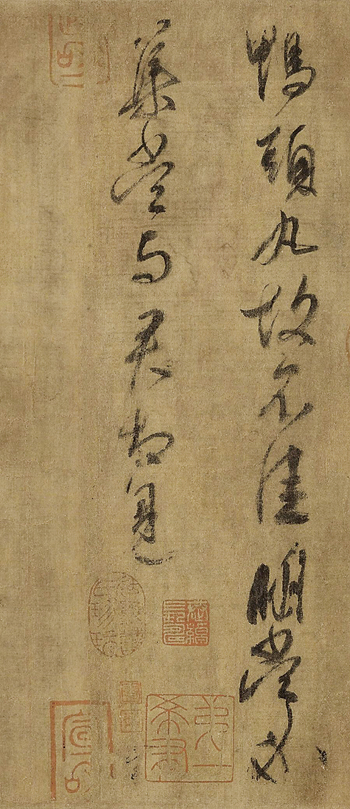 鸭頭丸故不佳明當必
集當与君相見